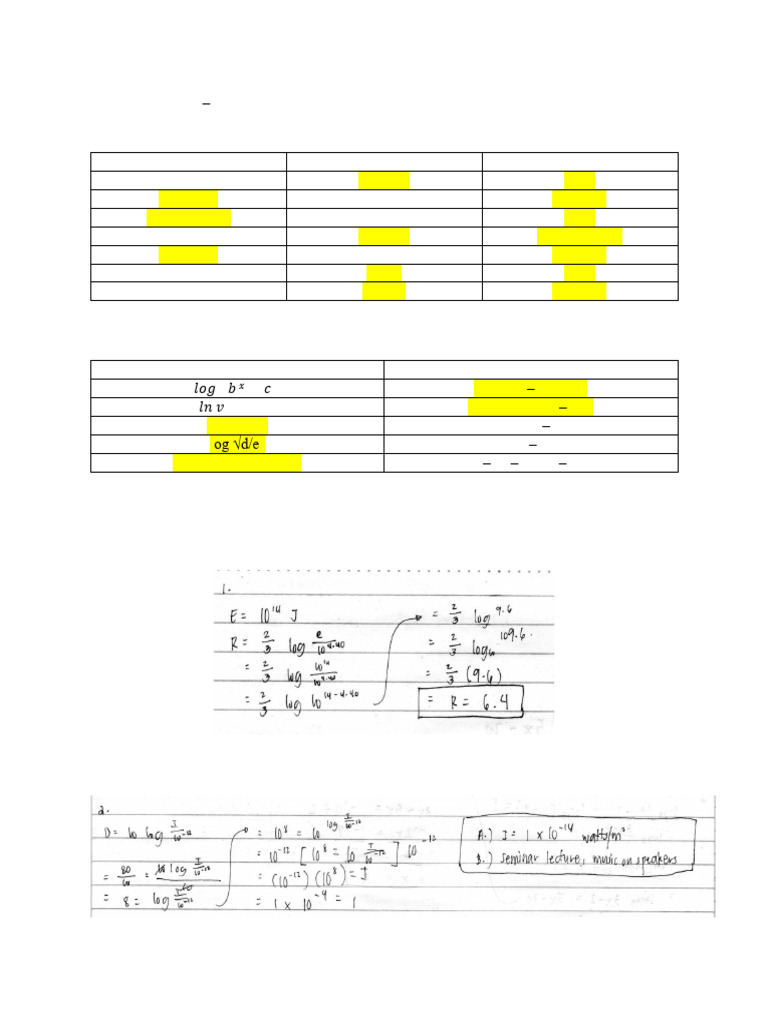 log b^x c
ln v
og √d/e
1.
E = 10^14 J
R = 2/3 log e/10^4.40
= 2/3 log 10^14/10^4.40
= 2/3 log 10^14-4.40
= 2/3 log^9.6
= 2/3 log
= 2/3 (9.6)
= R = 6.4
2.
D = 10 log I/10^-12
= 80/10 = 10 log I/10^-12
= 8 = log
= 10^8 = 10^log I/10^-12
= 10^-12 [10^8 = 10 I/10^-12] 10^-12
= (10^-12)(10^8) = I
= 1 x 10^-4 = 1
A.) I = 1 x 10^-14 watts/m²
B.) seminar lecture, music on speakers